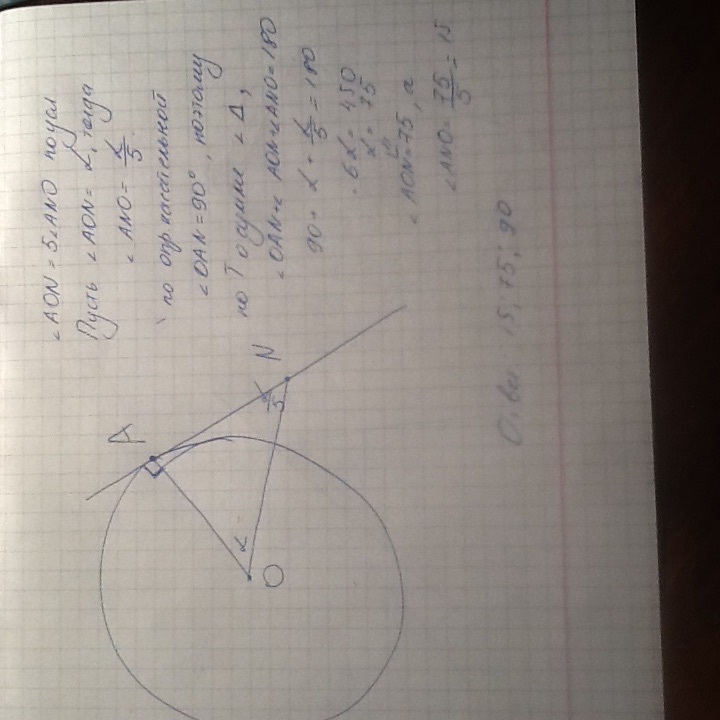 ∠AON = 5∠ANO по усл
Пусть ∠AON = α, тогда
∠ANO = α/5
по опр касательной
∠OAN = 90°, поэтому
по Т о сумме ∠ Δ,
∠OAN + ∠AON + ∠ANO = 180
90 + α + α/5 = 180
6α = 450
α = 75
∠AON = 75, а
∠ANO = 75/5 = 15
A
N
α/5
α
O
Ответ 15; 75; 90